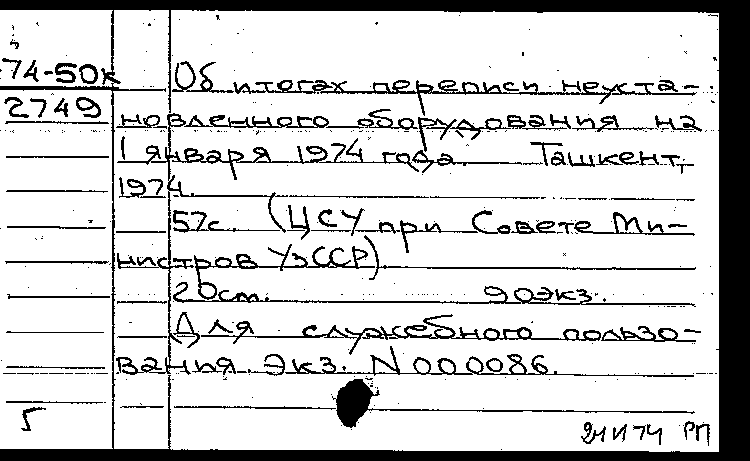 74-50к
2749
Об итогах переписи неуста-
новленного оборудования на
1 января 1974 года. Ташкент,
1974.
57с. (ЦСУ при Совете Ми-
нистров УзССР).
20см. 90экз.
Для служебного пользо-
вания. Экз. N 000086.
Б
РП